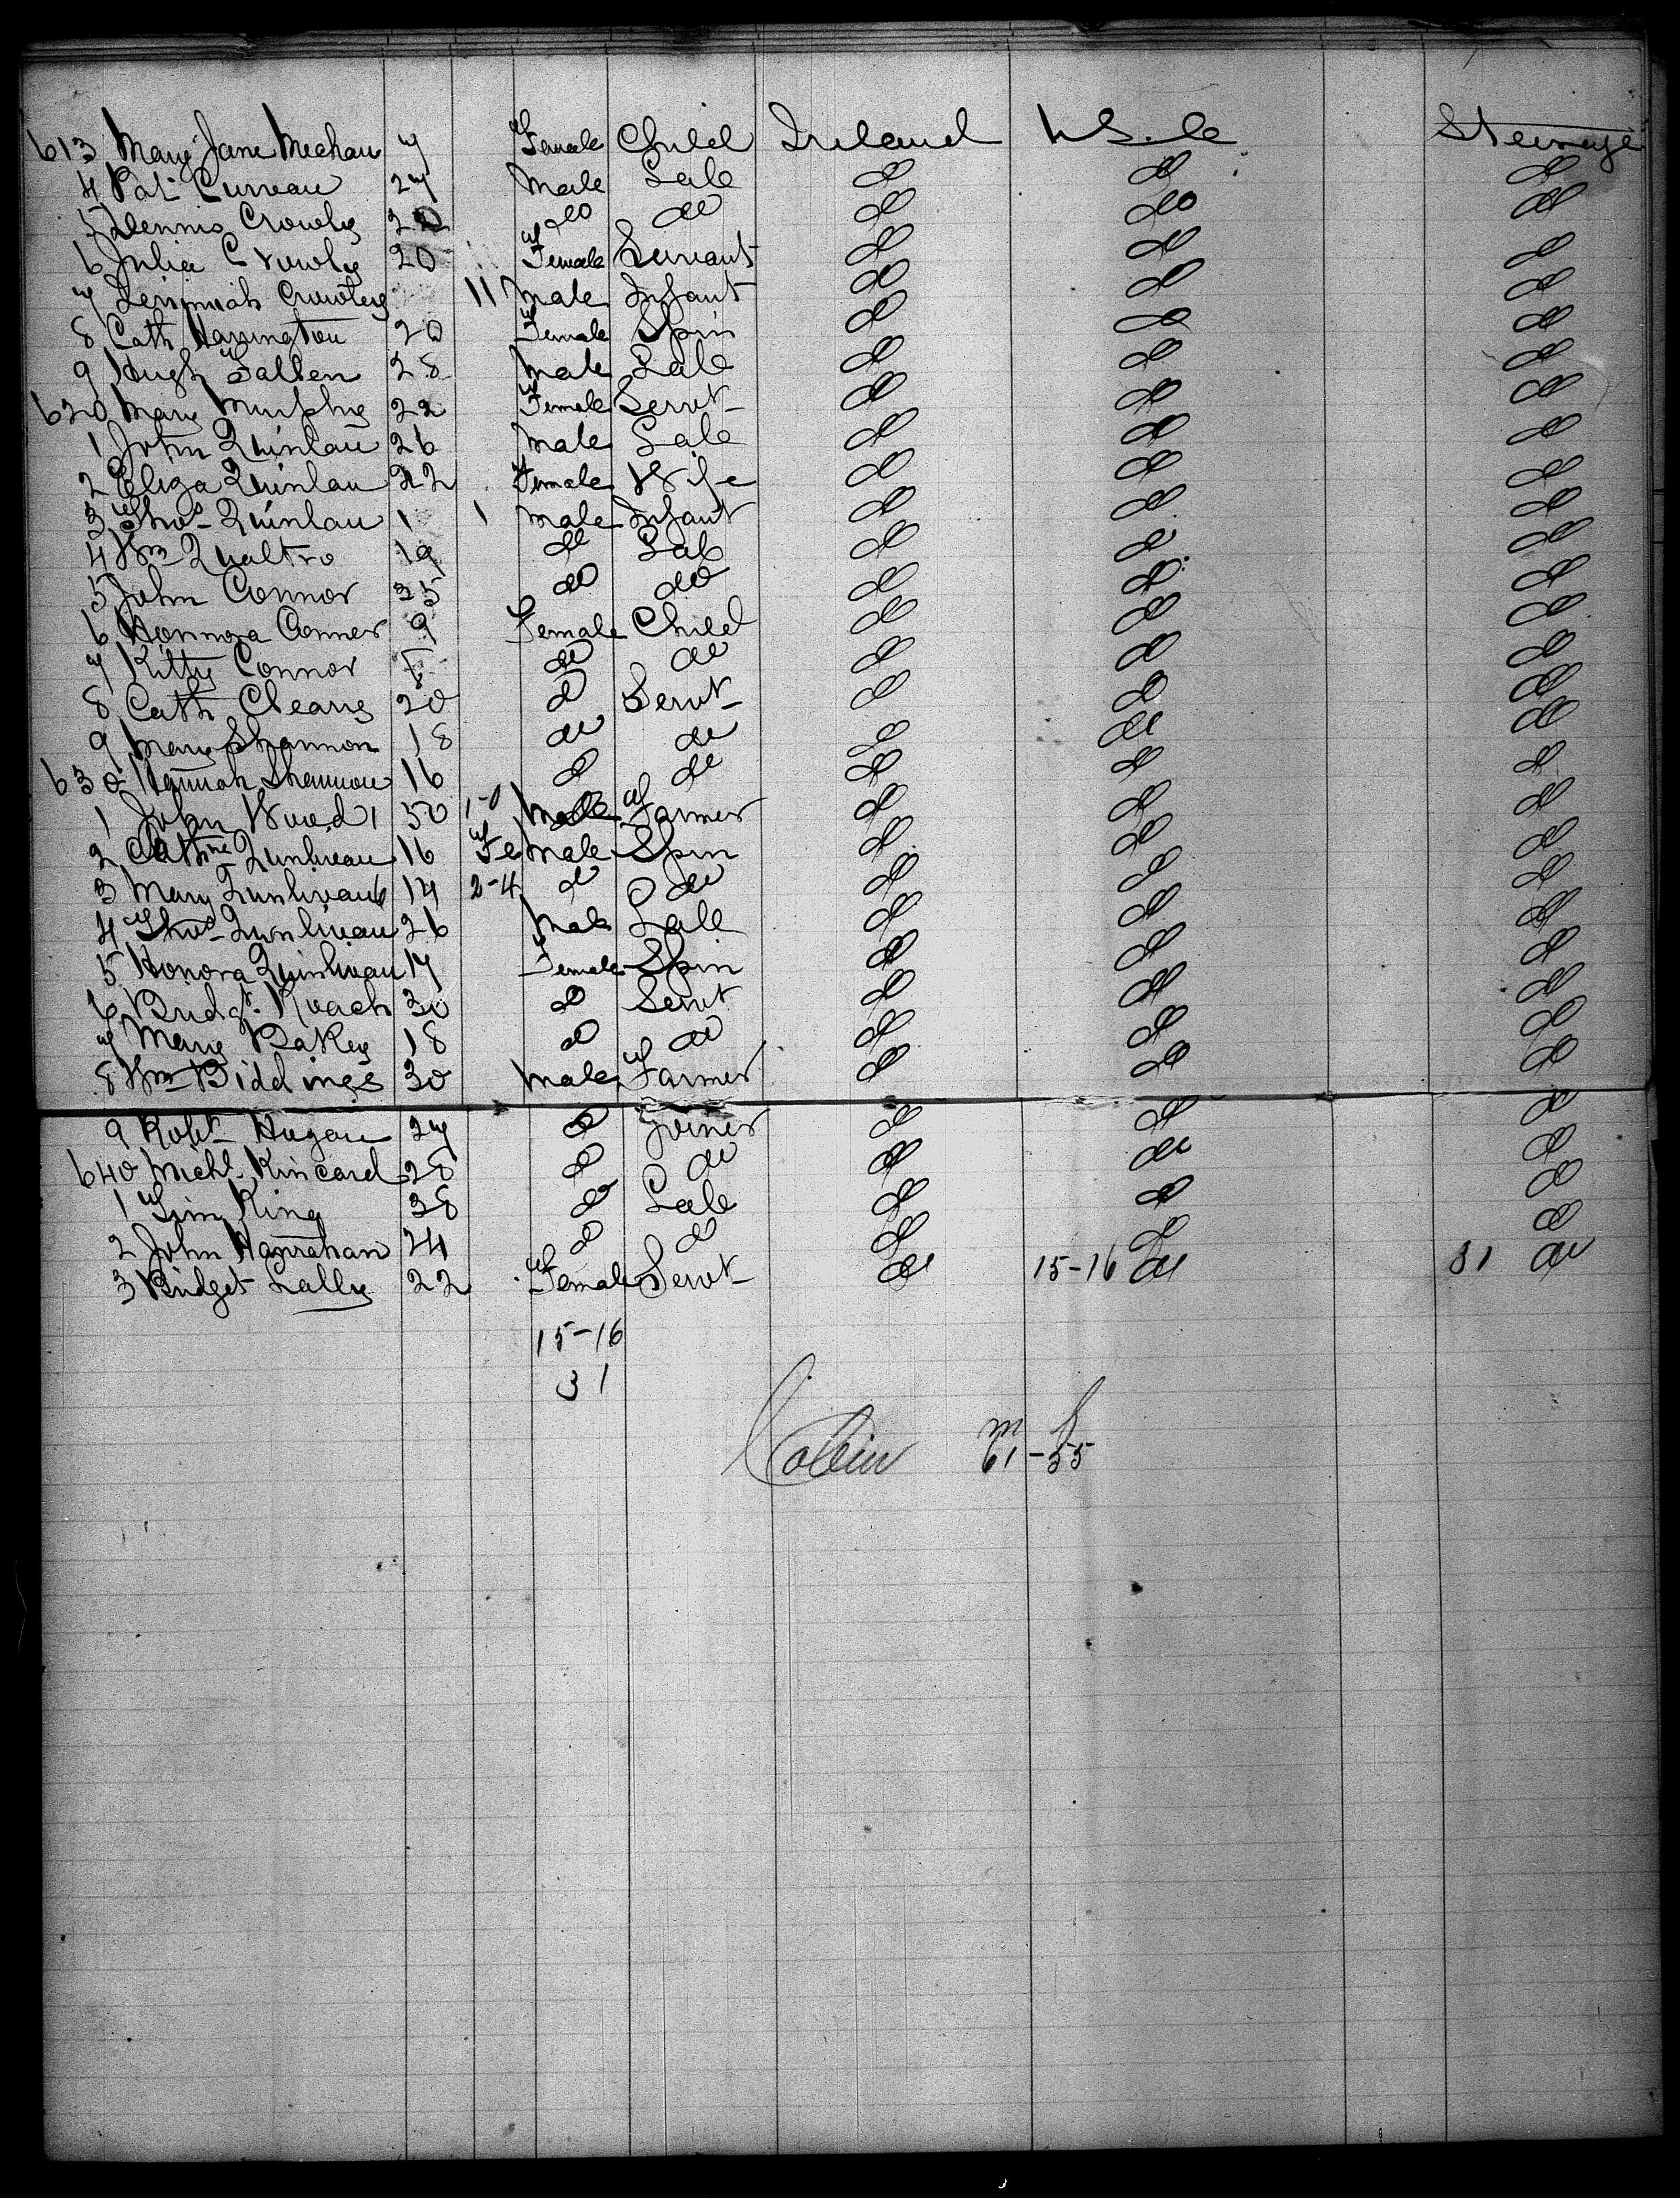 613 Mary Jane Mechan 7 Female Child Ireland U.S. Steerage
4 Pat Curreau 27 Male Lab do do do
5 Dennis Crowly 22 do do do do do
6 Julia Crowly 20 Female Servant do do do
7 Jerimiah Crowley 11 Male Infant do do do
8 Cath Harrington 20 Female Spin do do do
9 Hugh Fallen 28 Male Lab do do do
620 Mary Murphy 22 Female Servt do do do
1 John Quinlan 26 Male Lab do do do
2 Eliza Quinlan 22 Female Wife do do do
3 Thos Quinlan 1 1 Male Infant do do do
4 Wm Qualtro 19 do Lab do do do
5 John Connor 35 do do do do do
6 Honnora Conner 9 Female Child do do do
7 Kitty Connor do do do do do
8 Cath Cleary 20 do Servt do do do
9 Mary Shannon 18 do do do do do
630 Hannah Shannon 16 do do do do do
1 John Wood 50 1-0 Male Farmer do do do
2 Cathine Quinlivan 16 Female Spin do do do
3 Mary Quinlivan 14 2-4 do do do do do
4 Thos Quinlivan 26 Male Lab do do do
5 Honora Quinlivan 17 Female Spin do do do
6 Bridgt Roach 30 do Servt do do do
7 Mary Bakey 18 do do do do do
8 Wm Biddings 30 Male Farmer do do do
9 Robt Hogan 27 do Joiner do do do
640 Michl Kincard 28 do do do do do
1 Tim King 38 do Lab do do do
2 John Hanrahan 24 do do do do do
3 Bridget Lally 22 Female Servt do 15-16 do 31 do
15-16
31
Cabin m f
61-55